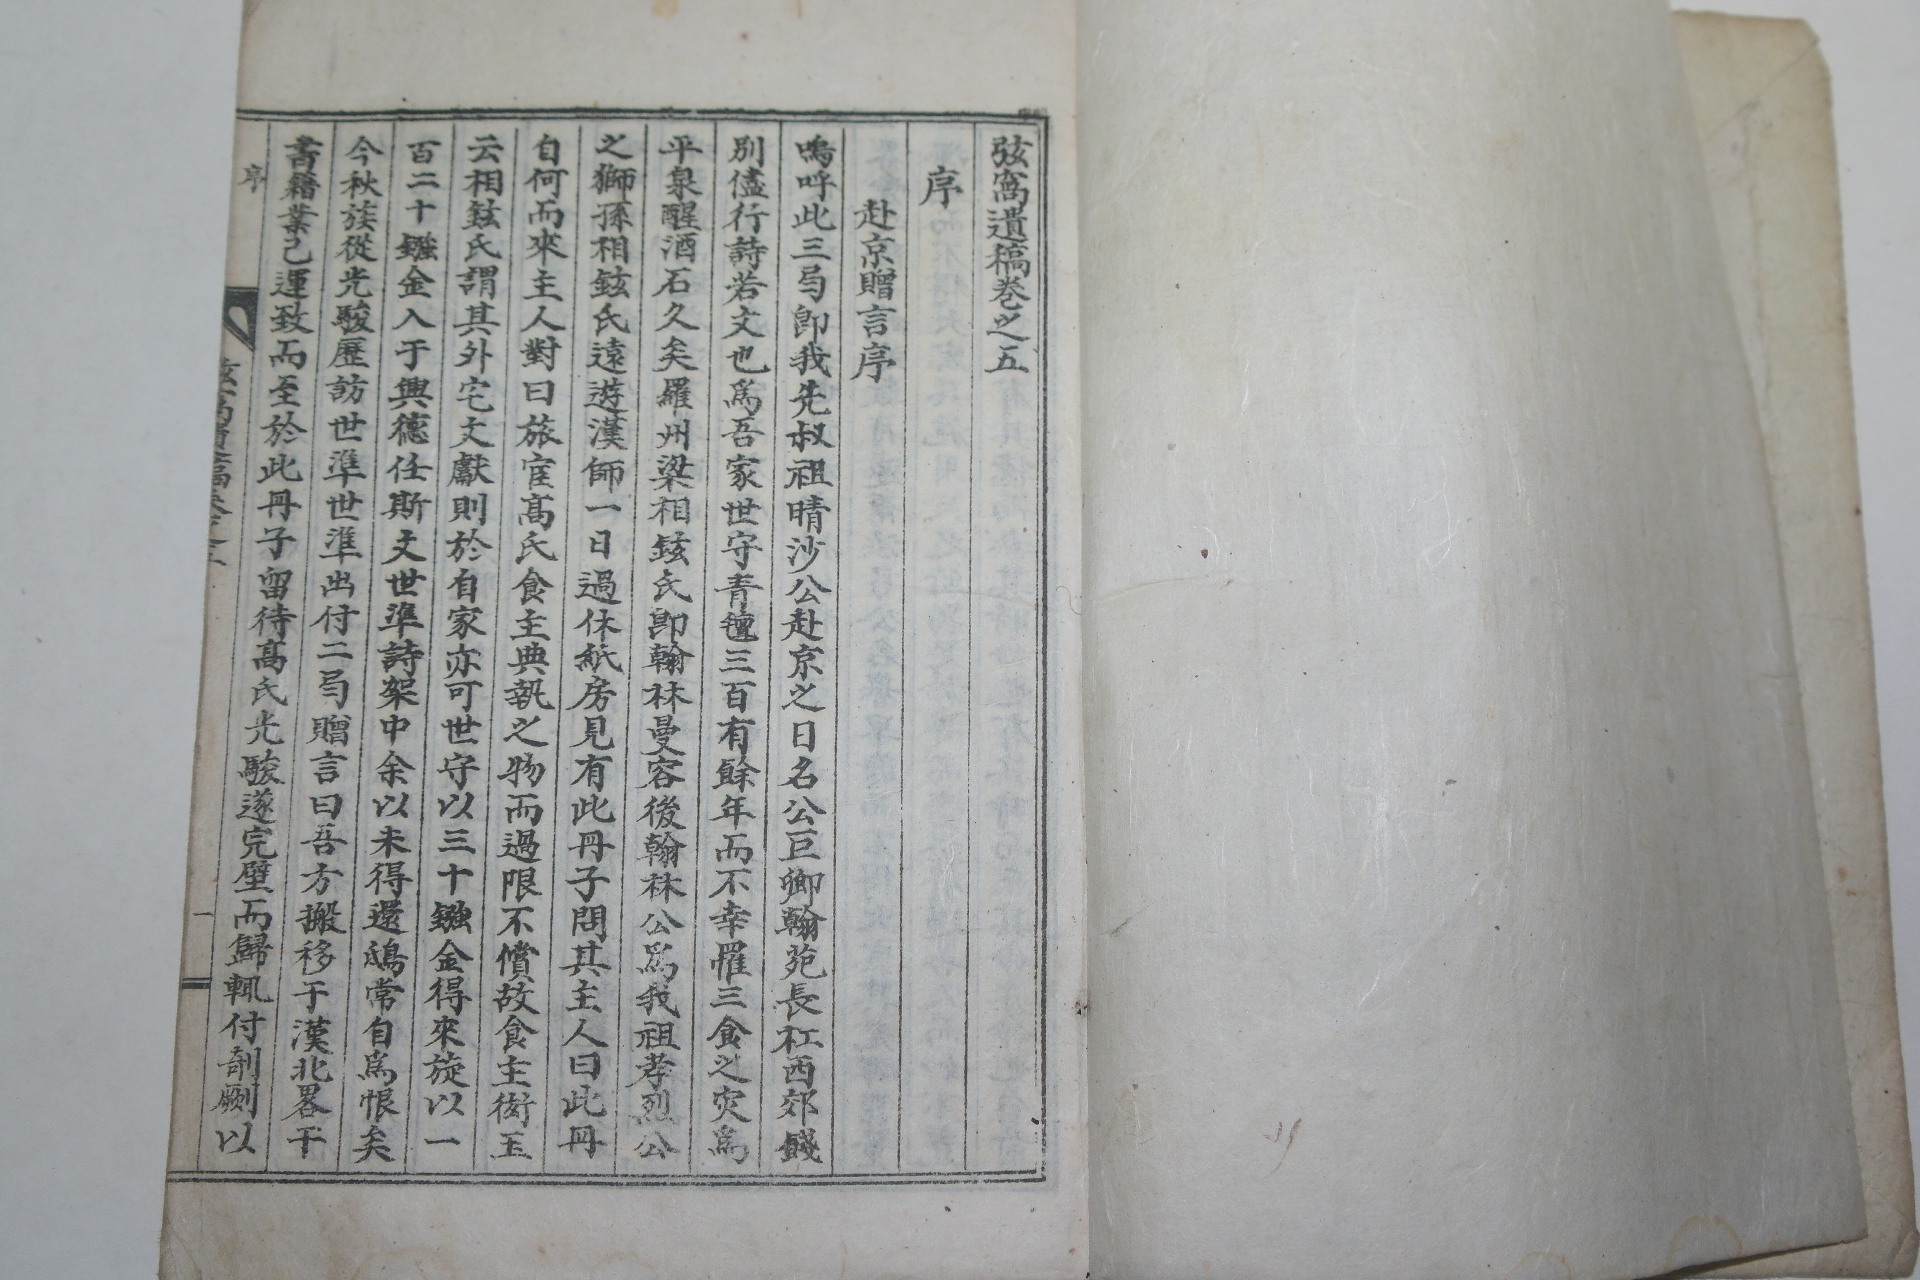 弦窩遺稿卷之五
序
赴京贈言序
嗚呼此三局卽我先叔祖晴沙公赴京之日名公巨卿翰苑長杠西郊餞
別儘行詩若文也爲吾家世守青氊三百有餘年而不幸罹三食之灾爲
平泉醒酒石久矣羅州梁相鉉氏卽翰林曼容後翰林公爲我祖孝烈公
之獅孫相鉉氏遠遊漢師一日過休紙房見有此冊子問其主人曰此冊
自何而來主人對曰旅宦高氏食主典執之物而過限不償故食主衒玉
云相鉉氏謂其外宅文獻則於自家亦可世守以三十鏹金得來旋以一
百二十鏹金入于興德任斯文世準詩架中余以未得還鴟常自爲恨矣
今秋族從光駿歷訪世準世準出付二局贈言曰吾方搬移于漢北畧干
書籍業已運致而至於此冊子留待高氏光駿遂完璧而歸輒付剞劂以
序
一